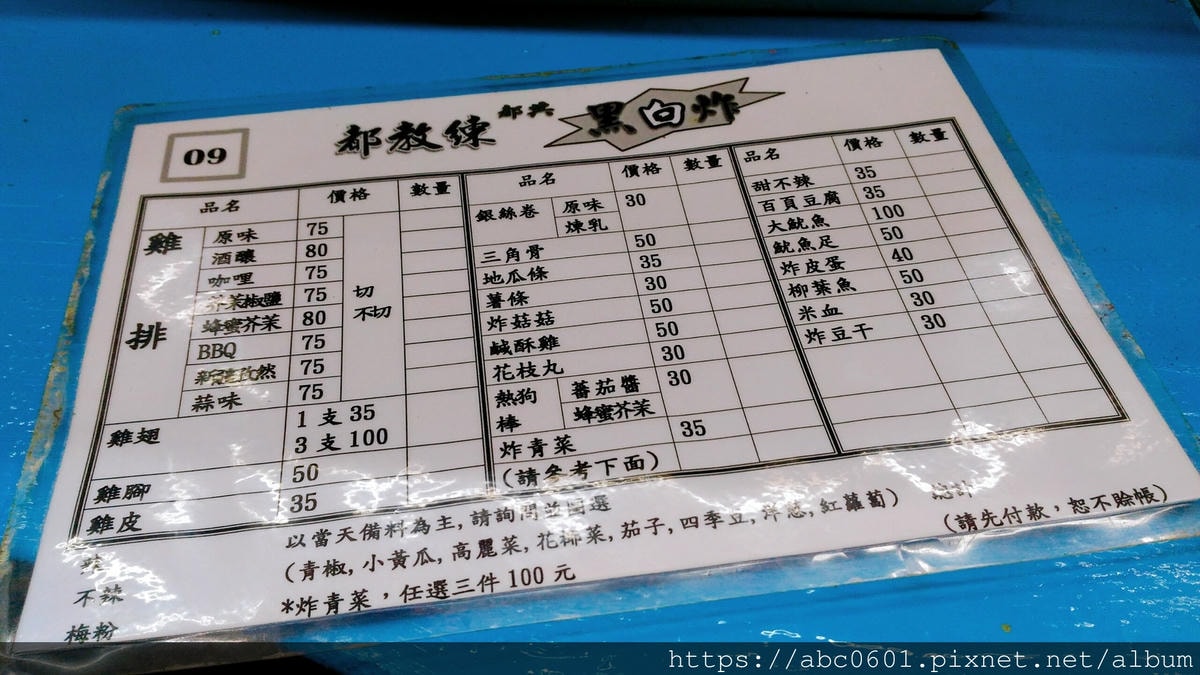 09
都教練 都與 黑白炸
品名 價格 數量
雞排
原味 75
酒釀 80
咖哩 75
芥茉椒鹽 75
蜂蜜芥茉 80
BBQ 75
新疆孜然 75
蒜味 75
切
不切
雞翅 1支35
3支100
雞腳 50
雞皮 35
品名 價格 數量
銀絲卷 原味 30
煉乳
三角骨 50
地瓜條 35
薯條 30
炸菇菇 50
鹹酥雞 50
花枝丸 30
熱狗棒 蕃茄醬 30
蜂蜜芥茉
炸青菜 35
(請參考下面)
品名 價格 數量
甜不辣 35
百頁豆腐 35
大魷魚 100
魷魚足 50
炸皮蛋 40
柳葉魚 50
米血 30
炸豆干 30
辣
不辣
梅粉
以當天備料為主,請詢問並圈選
(青椒,小黃瓜,高麗菜,花椰菜,茄子,四季豆,洋蔥,紅蘿蔔)
*炸青菜,任選三件100元
總計
(請先付款,恕不賒帳)
https://abc0601.pixnet.net/album